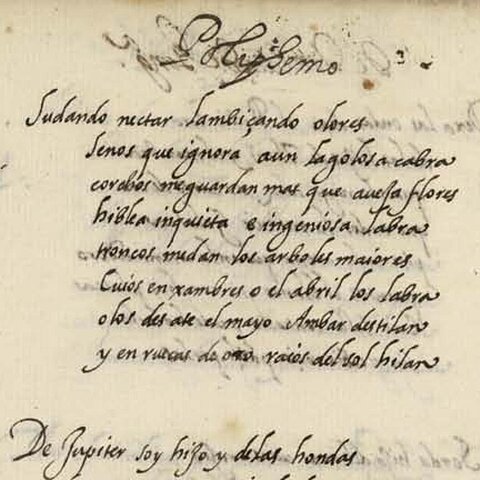 Polyphemo
Sudando nectar lambicando olores
senos que ignora aun la golosa cabra
corchos me guardan mas que aueja flores
hiblea inquieta e ingeniosa labra
troncos me dan los arboles maiores
Cuios enxambres o el abril los labra
o los desate el mayo Ambar destilan
y en ruecas de oro raios del sol hilan
De Jupiter soy hijo y de las hondas